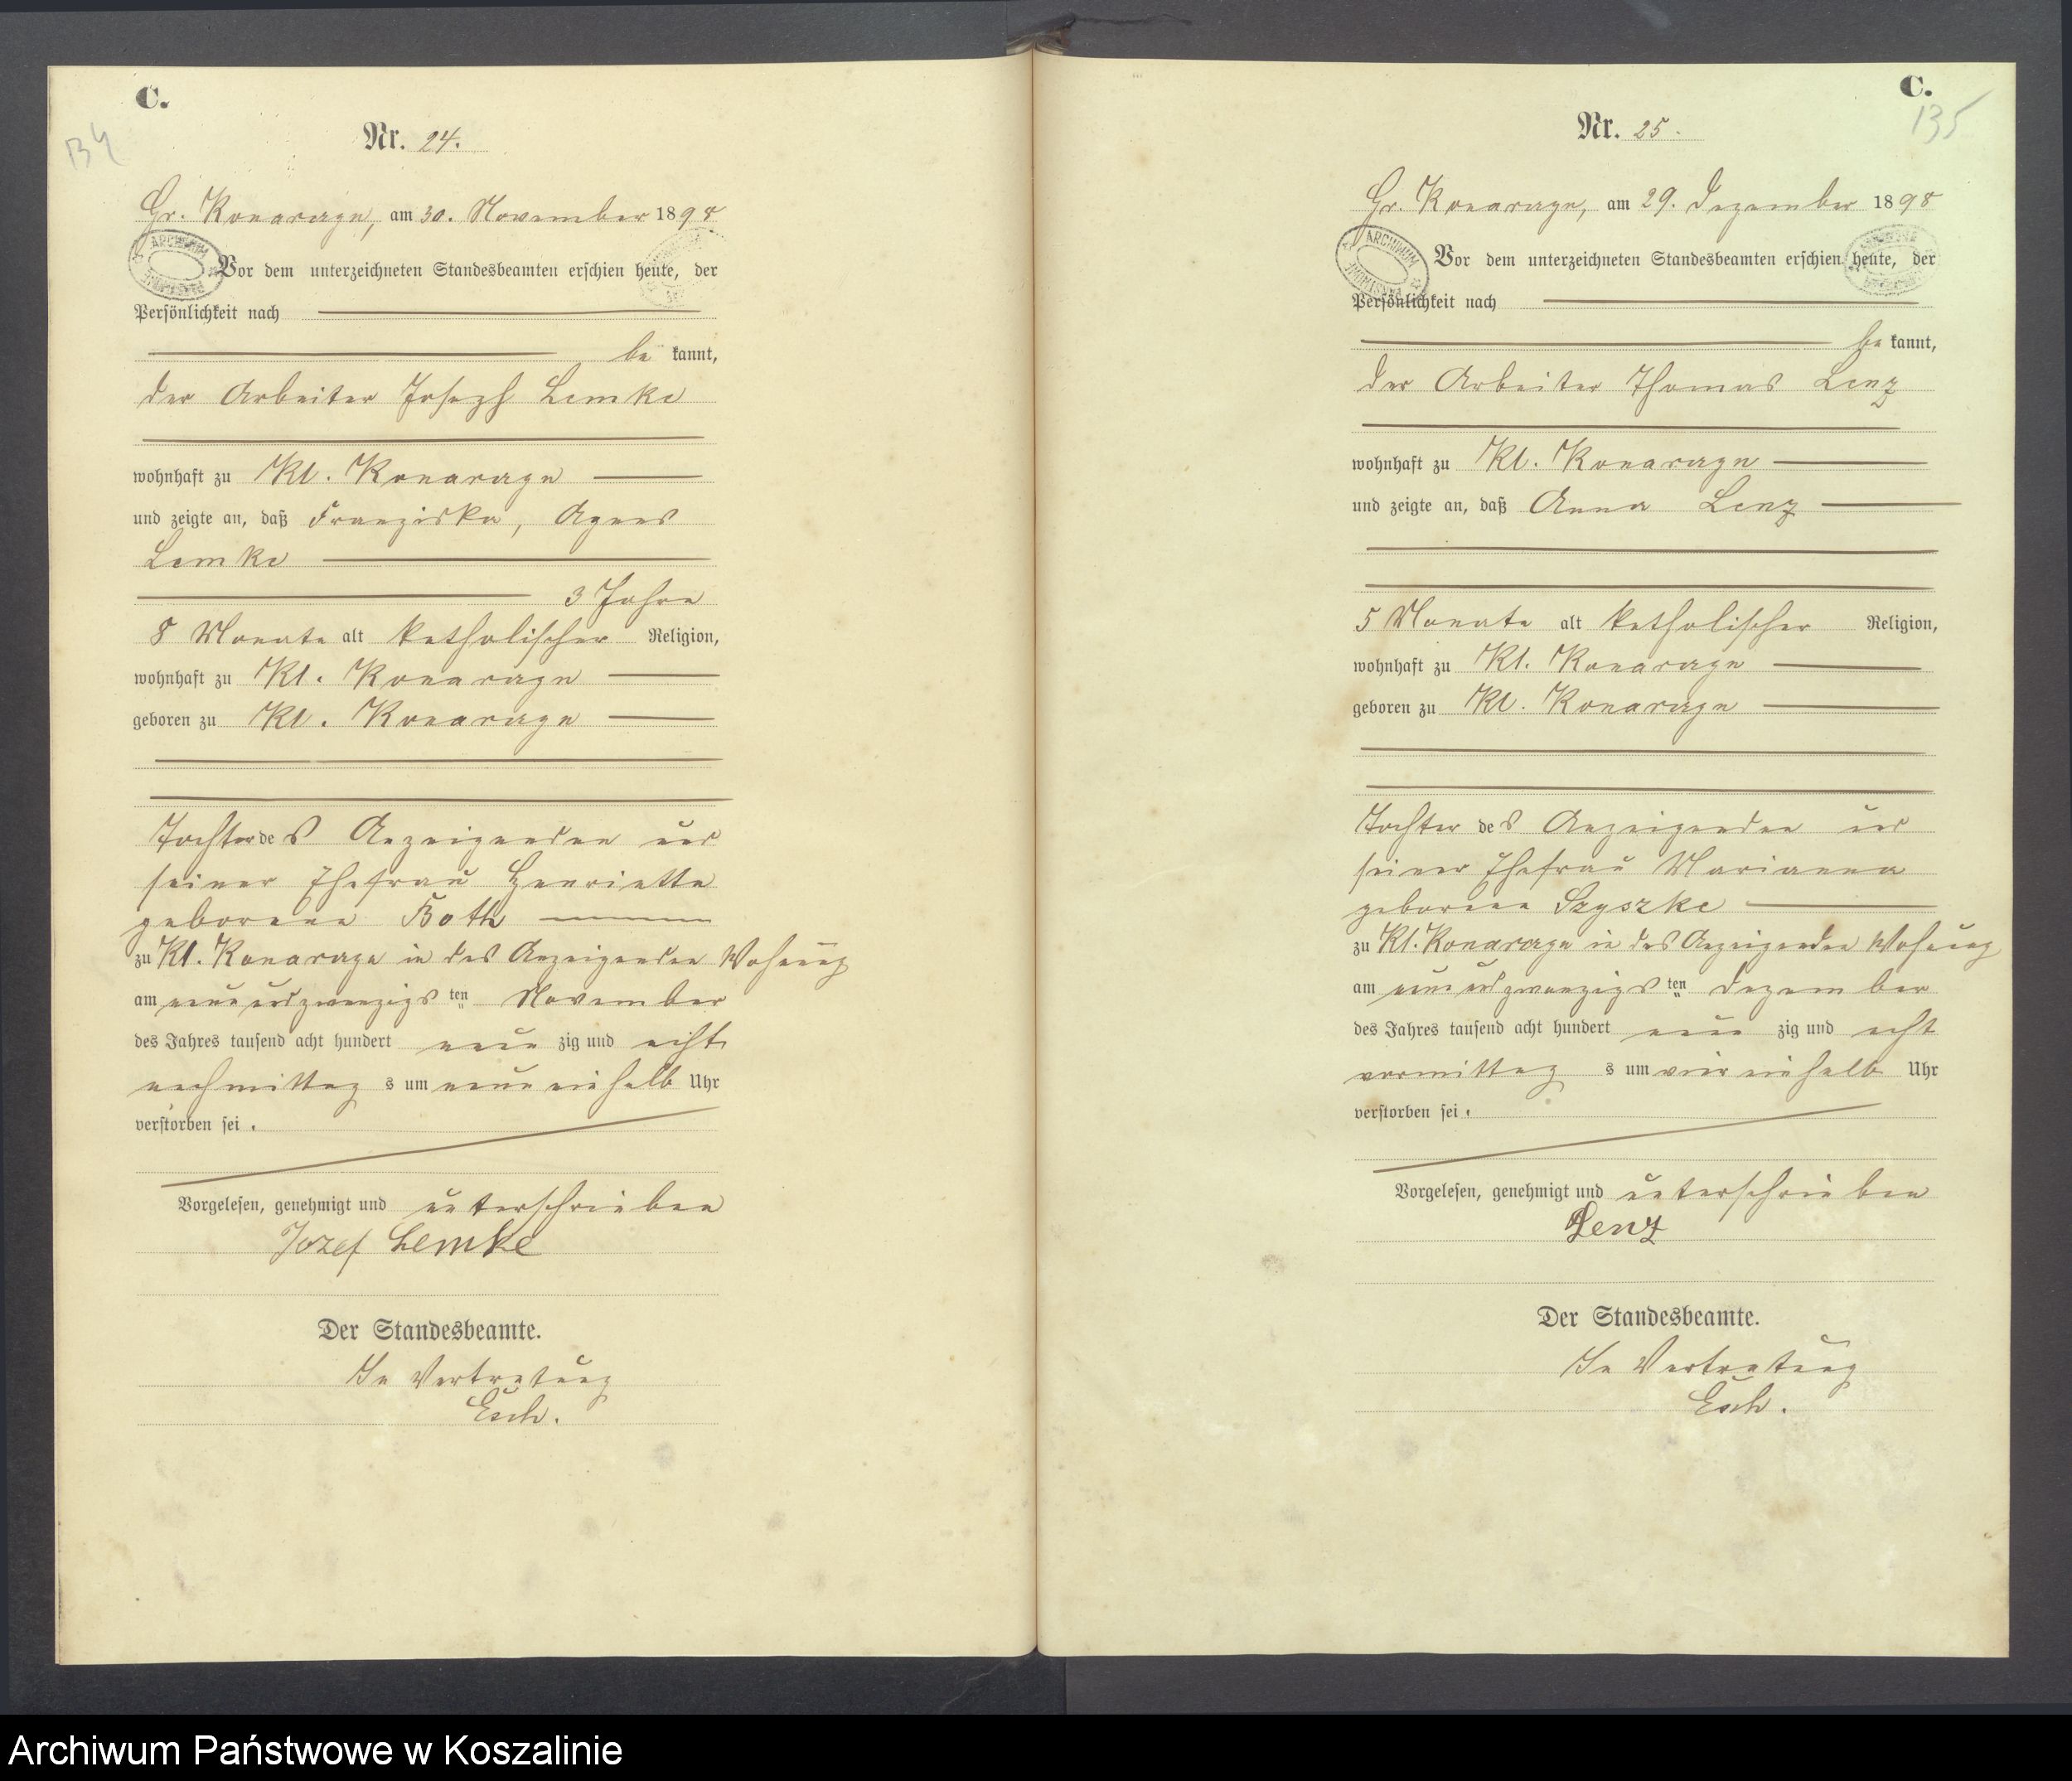 C.
134
Nr. 24.
Gr. Konarzyn, am 30. November 1898
Vor dem unterzeichneten Standesbeamten erschien heute, der
Persönlichkeit nach
be kannt,
der Arbeiter Joseph Lemke
wohnhaft zu Kl. Konarzyn
und zeigte an, daß Franziska, Agnes
Lemke
3 Jahre
8 Monate alt katholischer Religion,
wohnhaft zu Kl. Konarzyn
geboren zu Kl. Konarzyn
Tochter des Anzeigenden und
seiner Ehefrau Henriette
geborene Both
zu Kl. Konarzyn in des Anzeigenden Wohnung
am neunundzwanzigsten November
des Jahres tausend acht hundert neunzig und acht
nachmittags um neuneinhalb Uhr
verstorben sei.
Vorgelesen, genehmigt und unterschrieben
Jozef Lemke
Der Standesbeamte.
In Vertretung
Esch.
C.
135
Nr. 25.
Gr. Konarzyn, am 29. Dezember 1898
ARCHIWUM
Vor dem unterzeichneten Standesbeamten erschien heute, der
Persönlichkeit nach
be kannt,
der Arbeiter Thomas Lenz
wohnhaft zu Kl. Konarzyn
und zeigte an, daß Anna Lenz
5 Monate alt katholischer Religion,
wohnhaft zu Kl. Konarzyn
geboren zu Kl. Konarzyn
Tochter des Anzeigenden und
seiner Ehefrau Marianna
geborene Szyszke
zu Kl. Konarzyn in des Anzeigenden Wohnung
am neunundzwanzigsten Dezember
des Jahres tausend acht hundert neunzig und acht
vormittags um viereinhalb Uhr
verstorben sei.
Vorgelesen, genehmigt und unterschrieben
Lenz
Der Standesbeamte.
In Vertretung
Esch.
Archiwum Państwowe w Koszalinie